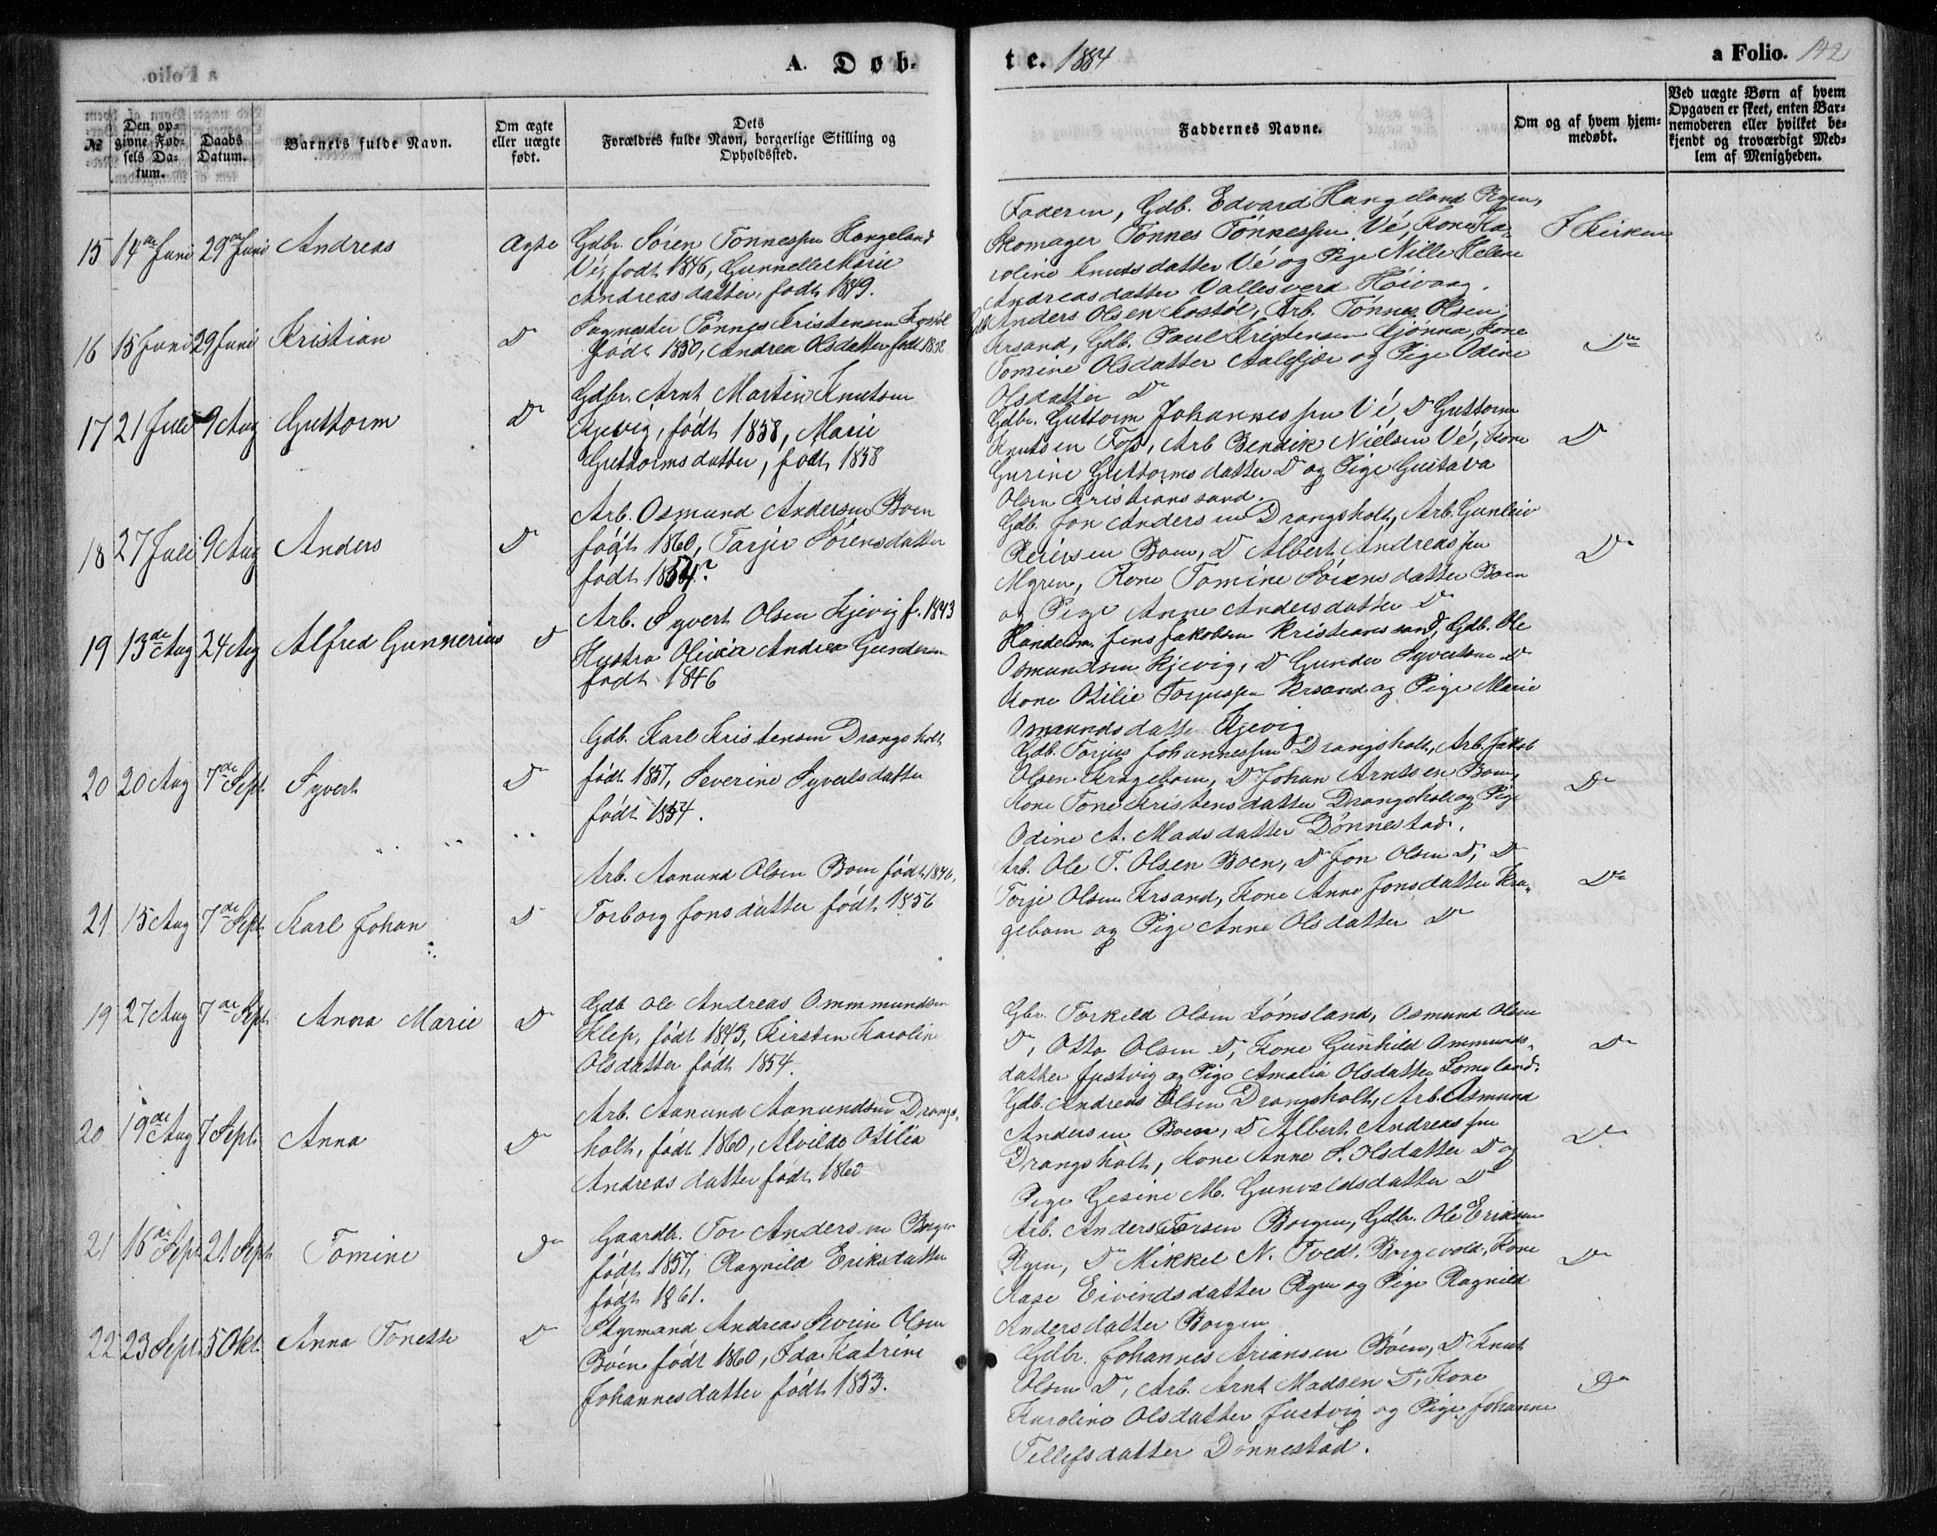 A. Døb-
te. 1884
a Folio. 142
№
Den op-
givne Fød-
sels Da-
tum.
Daabs
Datum.
Barnets fulde Navn.
Om ægte
eller uægte
født.
Dets
Forældres fulde Navn, borgerlige Stilling og
Opholdssted.
Faddernes Navne.
Om og af hvem hjem-
medøbt.
Ved uægte Børn af hvem
Opgaven er skeet, enten Bar-
nemoderen eller hvilket be-
kjendt og troværdigt Med-
lem af Menigheden.
15 14de Juni 29de Juni Andreas Ægte
Gdbr. Sören Tönnessen Hangeland
Vé, født 1846, Gunnelle Marie
Andreasdatter, født 1849.
Faderen, Gdb. Edvard Hangeland Ryen,
Skomager Tönnes Tönnessen Vé, Kone Ka-
roline Knudsdatter Vé og Pige Nille Helene
Andreasdatter Vallesverd Höivaag.
I Kirken
16 15 Juni 29 Juni Kristian D
Tönnes Kristensen
født 1850, Andrea Olsdatter født 1852
Anders Olsen Kostöl, Arb. Tönnes Olsen
Krsand, Gdb. Paul Kristensen, Kone
Tomine Olsdatter Aalefjær og Pige Odine
Olsdatter Do
Do
17 21 Juli 9 Aug Guttorm Do
Gdbr. Arnt Martin Knutsen
Kjevig, født 1858, Marie
Guttormsdatter, født 1858
Gdbr. Guttorm Johannessen Vé, D Guttorm
Knutsen Foss, Arb Bendik Nielsen Vé, Kone
Gurine Guttormsdatter D og Pige Gustava
Olsen Kristianssand.
D
18 27 Juli 9 Aug Anders Do
Arb. Osmund Andersen Boen
født 1860, Tarjer Sörensdatter
født 1854?
Gdb. Jon Andersen Drangsholt, Arb. Gunleiv
Reiersen Boen, D Albert Andreassen
Myren, Kone Tomine Sörensdatter Boen
og Pige Anne Andersdatter Do
Do
19 13de Aug 24 Aug Alfred Gunnerius D
Arb. Syvert Olsen Kjevig f. 1843
Hustru Andrea Gundersen
født 1846
Handelsm. Jens Jakobsen Kristianssand, Gdb. Ole
Osmundsen Kjevig, D Gunder Syvertsen D
Kone Otilie Torjussen Krsand og Pige Marie
Osmundsdatter Kjevig
20 20 Aug 7de Sept. Syvert Do
Gdb. Karl Kristensen Drangsholt
født 1857, Severine Syvertsdatter
født 1854.
Gdb. Torjus Johannessen Drangsholt, Arb. Jakob
Olsen Krageboen, D Johan Arntsen Boen,
Kone Tone Kristensdatter Drangsholt og Pige
Odine A. Madsdatter Dönnestad.
Do
21 15 Aug 7de Sept. Karl Johan D
Arb. Aanund Olsen Boen født 1846,
Torborg Jonsdatter født 1856
Arb. Ole T. Olsen Boen, D Jon Olsen D, D
Torje Olsen Krsand, Kone Anne Jonsdatter Kra-
geboen og Pige Anne Olsdatter Do
Do
19 27 Aug 7de Sept. Anna Marie Do
Gdb Ole Andreas Ommundsen
Klep, født 1843, Kirsten Karoline
Olsdatter født 1854.
Gbr. Torkild Olsen Lömsland, Osmund Olsen
D, Otto Olsen D, Kone Gunhild Ommunds-
datter Justvig og Pige Amalia Olsdatter Lömsland.
Do
20 19de Aug 7 Sept. Anna Do
Arb. Aanund Aanundsen Drangs-
holt, født 1860, Alvilde Otilia
Andreasdatter født 1860
Gdb. Andreas Olsen Drangsholt, Arb. Osmund
Andersen Boen, D Albert Andreassen
Drangsholt, Kone Anne S. Olsdatter D og
Pige Gesine M. Gunvaldsdatter Do
Do
21 16de Sept. 21 Sept. Tomine Do
Gaardbr. Tor Andersen Borgen
født 1857, Ragnild Eriksdatter
født 1861.
Arb. Anders Torsen Borgen, Gdbr. Ole Eriksen
Ryen, Do Mikkel N. Tvedt. Borgevold, Kone
Aase Eivindsdatter Ryen og Pige Ragnild
Andersdatter Borgen
Do
22 23 Sept. 5 Okt. Anna Tonette D
Styrmand Andreas Severin Olsen
Böen født 1860, Ida Katrine
Johannesdatter født 1853.
Gdbr. Johannes Ariansen Böen, D Knut
Olsen Do, Arb. Arnt Madsen D, Kone
Karoline Olsdatter Justvig og Pige Johanne
Tellefsdatter Dönnestad.
Do